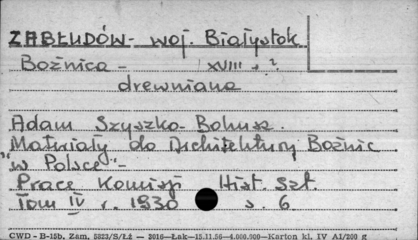 ZABŁUDÓW - woj. Białystok
Bożnica - XVIII w. ?
drewniana
Adam Szyszko-Bohusz.
Materiały do Architektury Bożnic
"w Polsce" -
Prace Komisji Hist. Szt.
Tom IV r. 1930 s. 6.
CWD - B-15b. Zam. 5823/S/Łż — 2016—Łak—15.11.56—4.000.000—Karton kl. IV A1/200 g